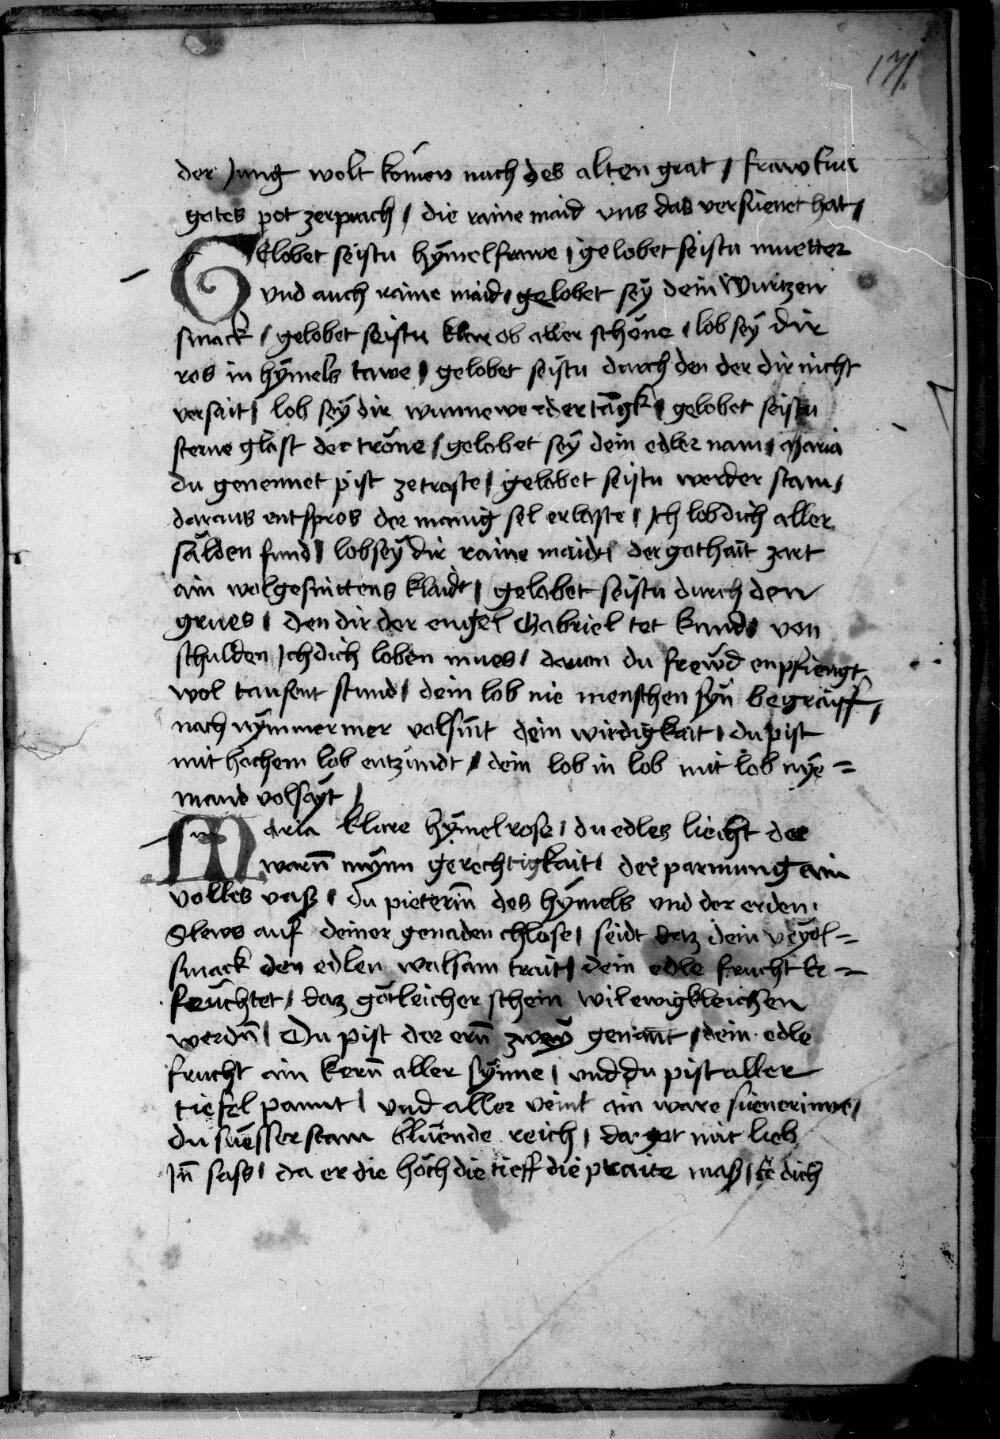 171
der Jung wolt komen nach des alten grat / fraw Eua
gotes pot zerprach / die raine maid vns das versuenet hat /
Gelobet seistu hymelfrawe / gelobet seistu muetter
vnd auch raine maid / gelobet seÿ dein Wurtzen
smack / gelobet seistu klar ob aller schöne / lob seÿ dir
ros in hÿmels tawe / gelobet seistu durch den der dir nicht
versait / lob seÿ dir wunne werder / gelobet seistu
sterne glast der tröne / gelobet seÿ dein edler nam / Maria
du genennet pist ze troste / gelobet seistu werder stam /
daraus entspros der manig sel erlaste / Ich lob dich aller
sälden fund / lob seÿ dir raine maidt / der gothait zart
ain wolgesnittens klaidt / gelobet seistu durch den
grues / den dir der engel Gabriel tet kund / von
schulden Ich dich loben mues / dauon du frewd enpfiengt
wol tausent stund / dein lob nie menschen sÿn begraiff /
nach nÿmmermer volsint dein wirdigkait / du pist
mit hochem lob entzündt / dein lob in lob mit lob nye=
mand volsaÿt /
Maria klare hÿmelrose / du edles liecht der
warn̄ mÿnn gerechtigkait / der parmung ain
volles vaß / du pieterin̄ des hÿmels vnd der erden /
Slews auf deiner genaden chlose / seidt daz dein veÿol=
smack den edlen walsam trait / dein edle frucht be=
feuchtet / daz götleicher schein wil ewigkleichen
werdn̄ / Du pist der ern̄ zweÿ genant / dein edle
frucht ain kern̄ aller sÿnne / vnd du pist aller
tiefel pannt / vnd aller veint ain ware suenerinne /
du suesser stam blüende reich / da got mit lieb
Jn̄ sass / da er die höch die tieff die praite maß / dich